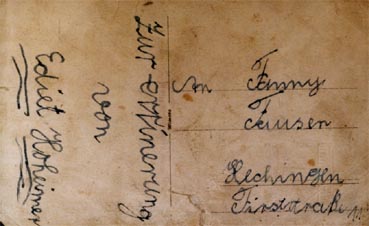 Zur Errinerung
von
Ediet Hoheimer
An Fanny
Tausen
Hechingen
Firststraße 11